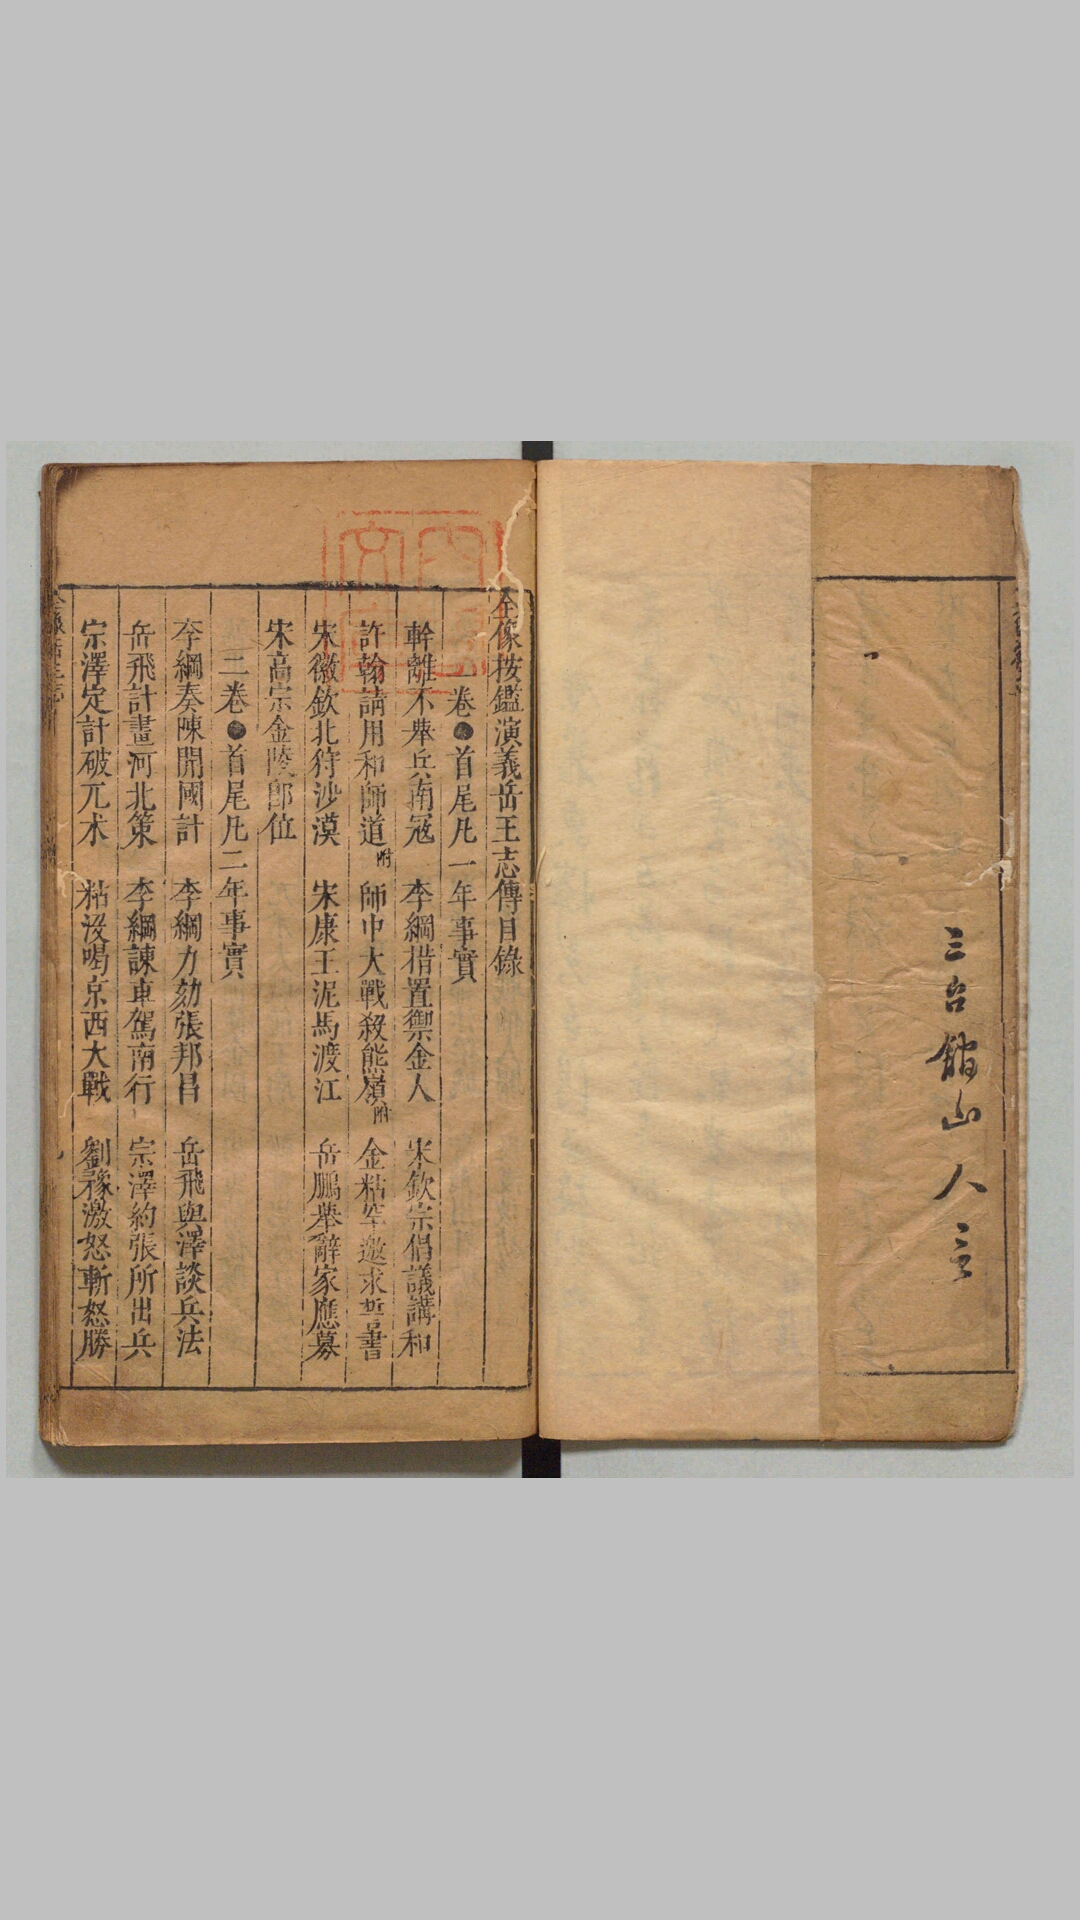 三台館山人言
全像按鑑演義岳王志傳目錄
一卷●首尾凢一年事實
幹離不舉兵南冦 李綱措置禦金人 宋欽宗倡議講和
許翰請用和師道附 師中大戰殺熊嶺附 金粘罕邀求誓書
宋徽欽北狩沙漠 宋康王泥馬渡江 岳鵬舉辭家應募
宋高宗金陵卽位
二卷●首尾凢二年事實
李綱奏陳開國計 李綱力劾張邦昌 岳飛與澤談兵法
岳飛計畫河北策 李綱諫車駕南行 宗澤約張所出兵
宗澤定計破兀术 粘没喝京西大戰 劉豫激怒斬怒勝